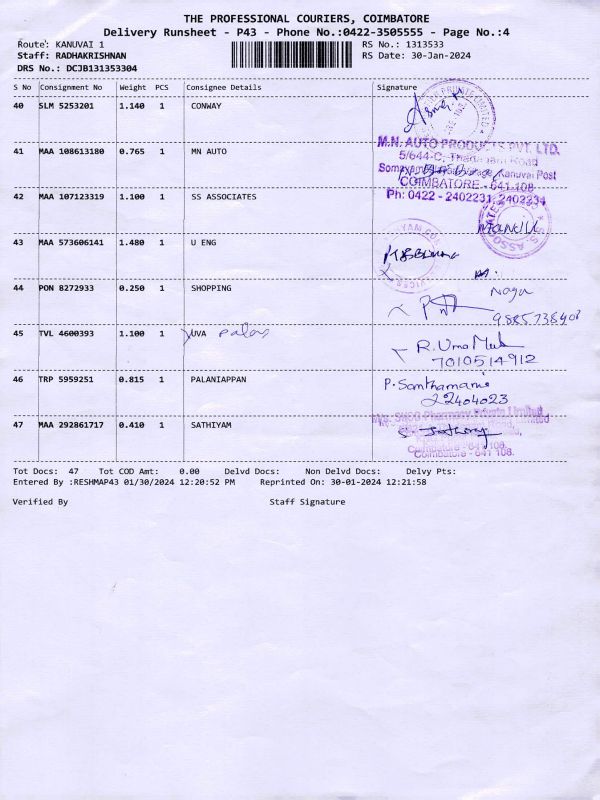 THE PROFESSIONAL COURIERS, COIMBATORE
Delivery Runsheet - P43 - Phone No.:0422-3505555 - Page No.:4
Route: KANUVAI 1 RS No.: 1313533
Staff: RADHAKRISHNAN RS Date: 30-Jan-2024
DRS No.: DCJB131353304
S No Consignment No Weight PCS Consignee Details Signature
40 SLM 5253201 1.140 1 CONWAY
41 MAA 108613180 0.765 1 MN AUTO
M.N. AUTO PRODUCTS PVT. LTD.
5/644-C, Road
Kanuvai Post
COIMBATORE - 641 108
Ph: 0422 - 2402231, 2402234
42 MAA 107123319 1.100 1 SS ASSOCIATES
S.S. ASSOCIATES
43 MAA 573606141 1.480 1 U ENG
44 PON 8272933 0.250 1 SHOPPING
Naga
45 TVL 4600393 1.100 1 UVA
R. Uma
7010514912
46 TRP 5959251 0.815 1 PALANIAPPAN P. Santhamani
22404023
47 MAA 292861717 0.410 1 SATHIYAM
Pharmacy Private Limited
Coimbatore - 641 108.
Tot Docs: 47 Tot COD Amt: 0.00 Delvd Docs: Non Delvd Docs: Delvy Pts:
Entered By :RESHMAP43 01/30/2024 12:20:52 PM Reprinted On: 30-01-2024 12:21:58
Verified By Staff Signature